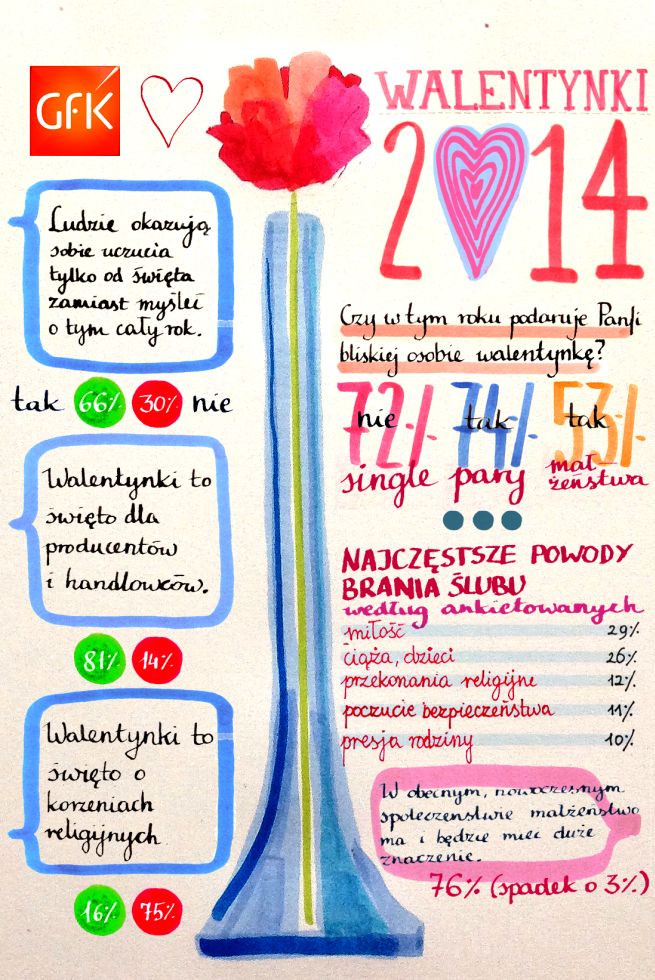 GFK
WALENTYNKI
2014
Ludzie okazują
sobie uczucia
tylko od święta
zamiast myśleć
o tym cały rok.
tak 66% 30% nie
Walentynki to
święto dla
producentów
i handlowców.
81% 14%
Walentynki to
święto o
korzeniach
religijnych
16% 75%
Czy w tym roku podaruje Pan/i
bliskiej osobie walentynkę?
72% nie 74% tak 53% tak
single pary mał-
żeństwa
NAJCZĘSTSZE POWODY
BRANIA ŚLUBU
według ankietowanych
miłość 29%
ciąża, dzieci 26%
przekonania religijne 12%
poczucie bezpieczeństwa 11%
presja rodziny 10%
W obecnym, nowoczesnym
społeczeństwie małżeństwo
ma i będzie mieć duże
znaczenie.
76% (spadek o 3%)